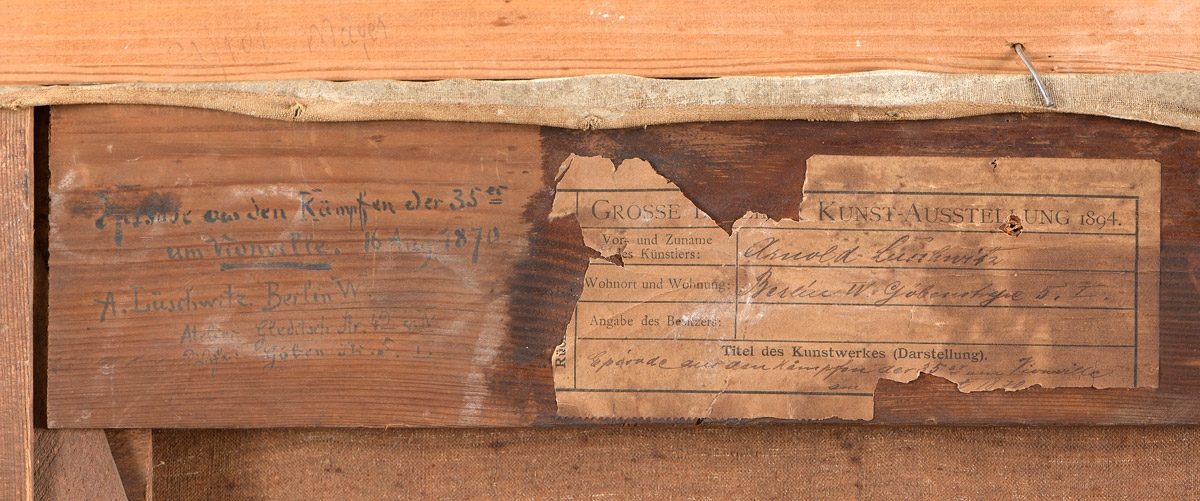 Mayer
Episode aus den Kämpfen der 35er
um Vionville. 16 Aug 1870
A. Lüschwitz Berlin W
Atelier Gleditsch Str.
Göben Str. 5. I.
GROSSE KUNST-AUSSTELLUNG 1894.
Vor- und Zuname
des Künstlers:
Arnold Lüschwitz
Wohnort und Wohnung:
Berlin W. Göbenstrasse 5. I.
Angabe des Besitzers:
Titel des Kunstwerkes (Darstellung).
Episode aus den Kämpfen der 35er um Vionville
am
Rü